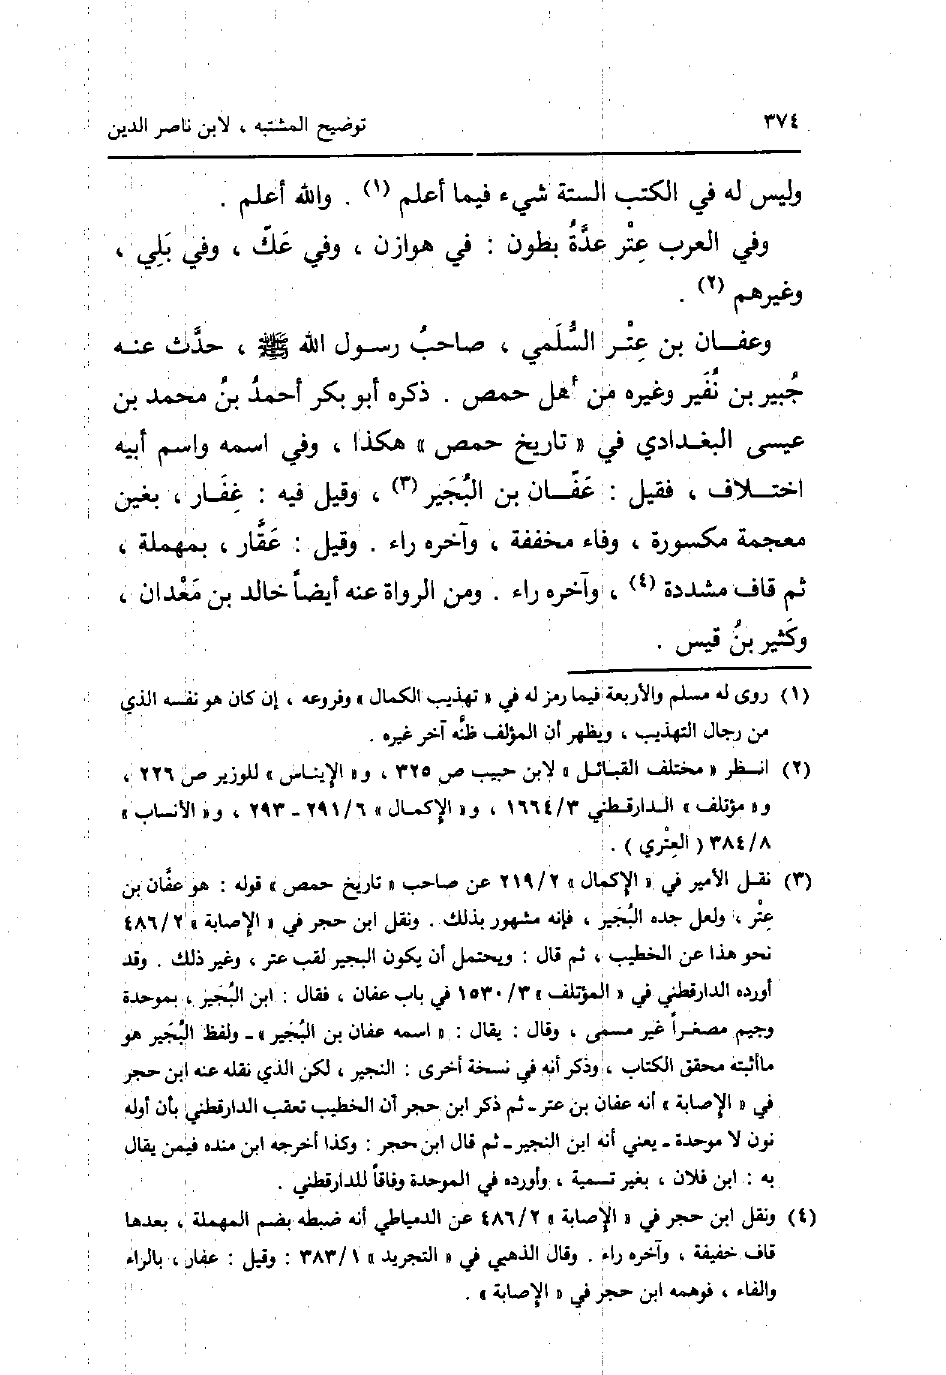 ٣٧٤ توضيح المشتبه ، لابن ناصر الدين
وليس له في الكتب الستة شيء فيما أعلم (١) . والله أعلم .
وفي العرب عِتْر عدَّةُ بطون : في هوازن ، وفي عَكّ ، وفي بَلِي ،
وغيرهم (٢) .
وعفـان بن عِتْـر السُّلَمي ، صاحبُ رسـول الله ﷺ ، حدَّث عنـه
جُبير بن نُفَير وغيره من أهل حمص . ذكره أبو بكر أحمدُ بنُ محمد بن
عيسى البغـدادي في « تاريخ حمص » هكذا ، وفي اسمه واسم أبيه
اختـلاف ، فقيل : عَفَّـان بن البُجَير (٣) ، وقيل فيه : غِفَـار ، بغين
معجمة مكسورة ، وفاء مخففة ، وآخره راء . وقيل : عَقَّار ، بمهملة ،
ثم قاف مشددة (٤) ، وآخره راء . ومن الرواة عنه أيضاً خالد بن مَعْدان ،
وكَثير بنُ قيس .
(١) روى له مسلم والأربعة فيما رمز له في « تهذيب الكمال » وفروعه ، إن كان هو نفسه الذي
من رجال التهذيب ، ويظهر أن المؤلف ظنَّه آخر غيره .
(٢) انـظر « مختلف القبائـل » لابن حبيب ص ٣٢٥ ، و« الإيناس » للوزير ص ٢٢٦ ،
و« مؤتلف » الـدارقطني ١٦٦٤/٣ ، و« الإكمـال » ٢٩١/٦ - ٢٩٣ ، و« الأنساب »
٣٨٤/٨ ( العِتْري ) .
(٣) نقـل الأمير في « الإكمال » ٢١٩/٢ عن صاحب « تاريخ حمص » قوله : هو عفَّان بن
عِتْر ، ولعل جده البُجَير ، فإنه مشهور بذلك . ونقل ابن حجر في « الإصابة » ٤٨٦/٢
نحو هذا عن الخطيب ، ثم قال : ويحتمل أن يكون البجير لقب عتر ، وغير ذلك . وقد
أورده الدارقطني في « المؤتلف » ١٥٣٠/٣ في باب عفان ، فقال : ابن البُجَير ، بموحدة
وجيم مصغـراً غير مسمى ، وقال : يقال : « اسمه عفان بن البُجَير » - ولفظ البُجَير هو
ماأثبته محقق الكتاب ، وذكر أنه في نسخة أخرى : النجير ، لكن الذي نقله عنه ابن حجر
في « الإصابة » أنه عفان بن عتر - ثم ذكر ابن حجر أن الخطيب تعقب الدارقطني بأن أوله
نون لا موحدة - يعني أنه ابن النجير - ثم قال ابن حجر : وكذا أخرجه ابن منده فيمن يقال
به : ابن فلان ، بغير تسمية ، وأورده في الموحدة وفاقاً للدارقطني .
(٤) ونقل ابن حجر في « الإصابة » ٤٨٦/٢ عن الدمياطي أنه ضبطه بضم المهملة ، بعدها
قاف خفيفة ، وآخره راء . وقال الذهبي في « التجريد » ٣٨٣/١ : وقيل : عفار ، بالراء
والفاء ، فوهمه ابن حجر في « الإصابة » .